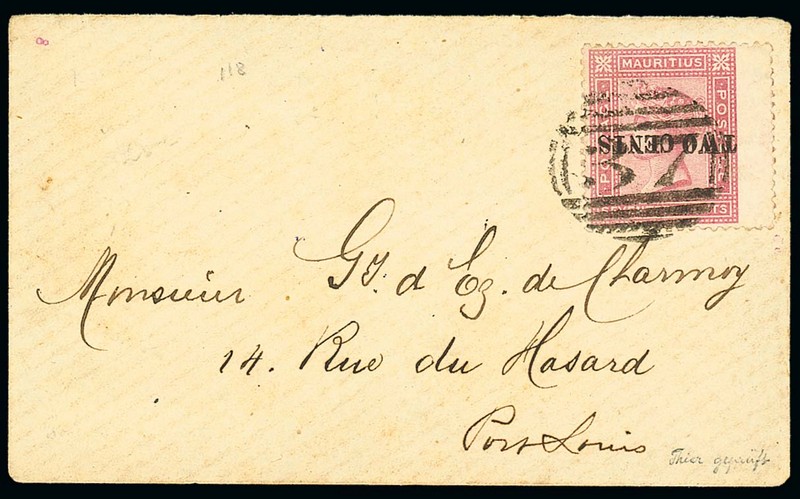 8
118
MAURITIUS
POS
TWO CENTS
TS
Monsieur Gy. d'Eg. de Charmoy
14. Rue du Hasard
Port Louis
Thier geprüft